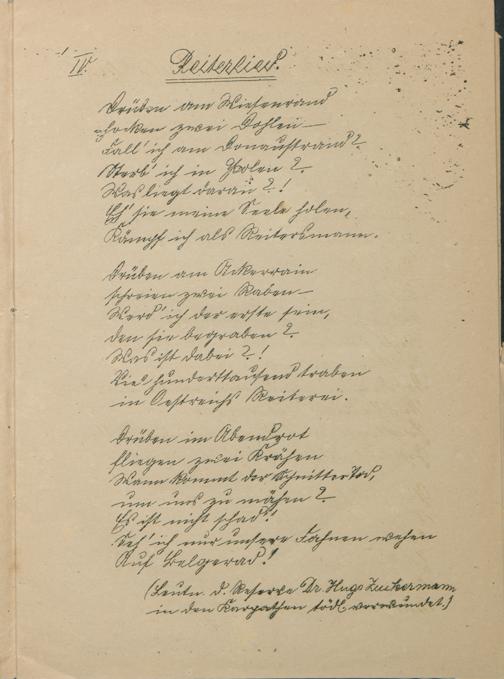 IV.
Reiterlied.
Drüben am Wiesenrand
hocken zwei Dohlen —
Fall' ich am Donaustrand?
Sterb' ich in Polen?
Was liegt daran?!
Eh' sie meine Seele holen,
Kämpf ich als Reitersmann.
Drüben am Ackerrain
schreien zwei Raben —
Werd' ich der erste sein,
den sie begraben?
Was ist dabei?!
Viel hunderttausend traben
in Oestreichs Reiterei.
Drüben im Abendrot
fliegen zwei Krähen
Wann kommt der Schnitter Tod,
um uns zu mähen?
Es ist nicht schad'!
Seh' ich nur unsere Fahnen wehen
Auf Belgerad!
(Leutn. d. Reserve Dr. Hugo Zuckermann
in den Karpathen tödl. verwundet.)